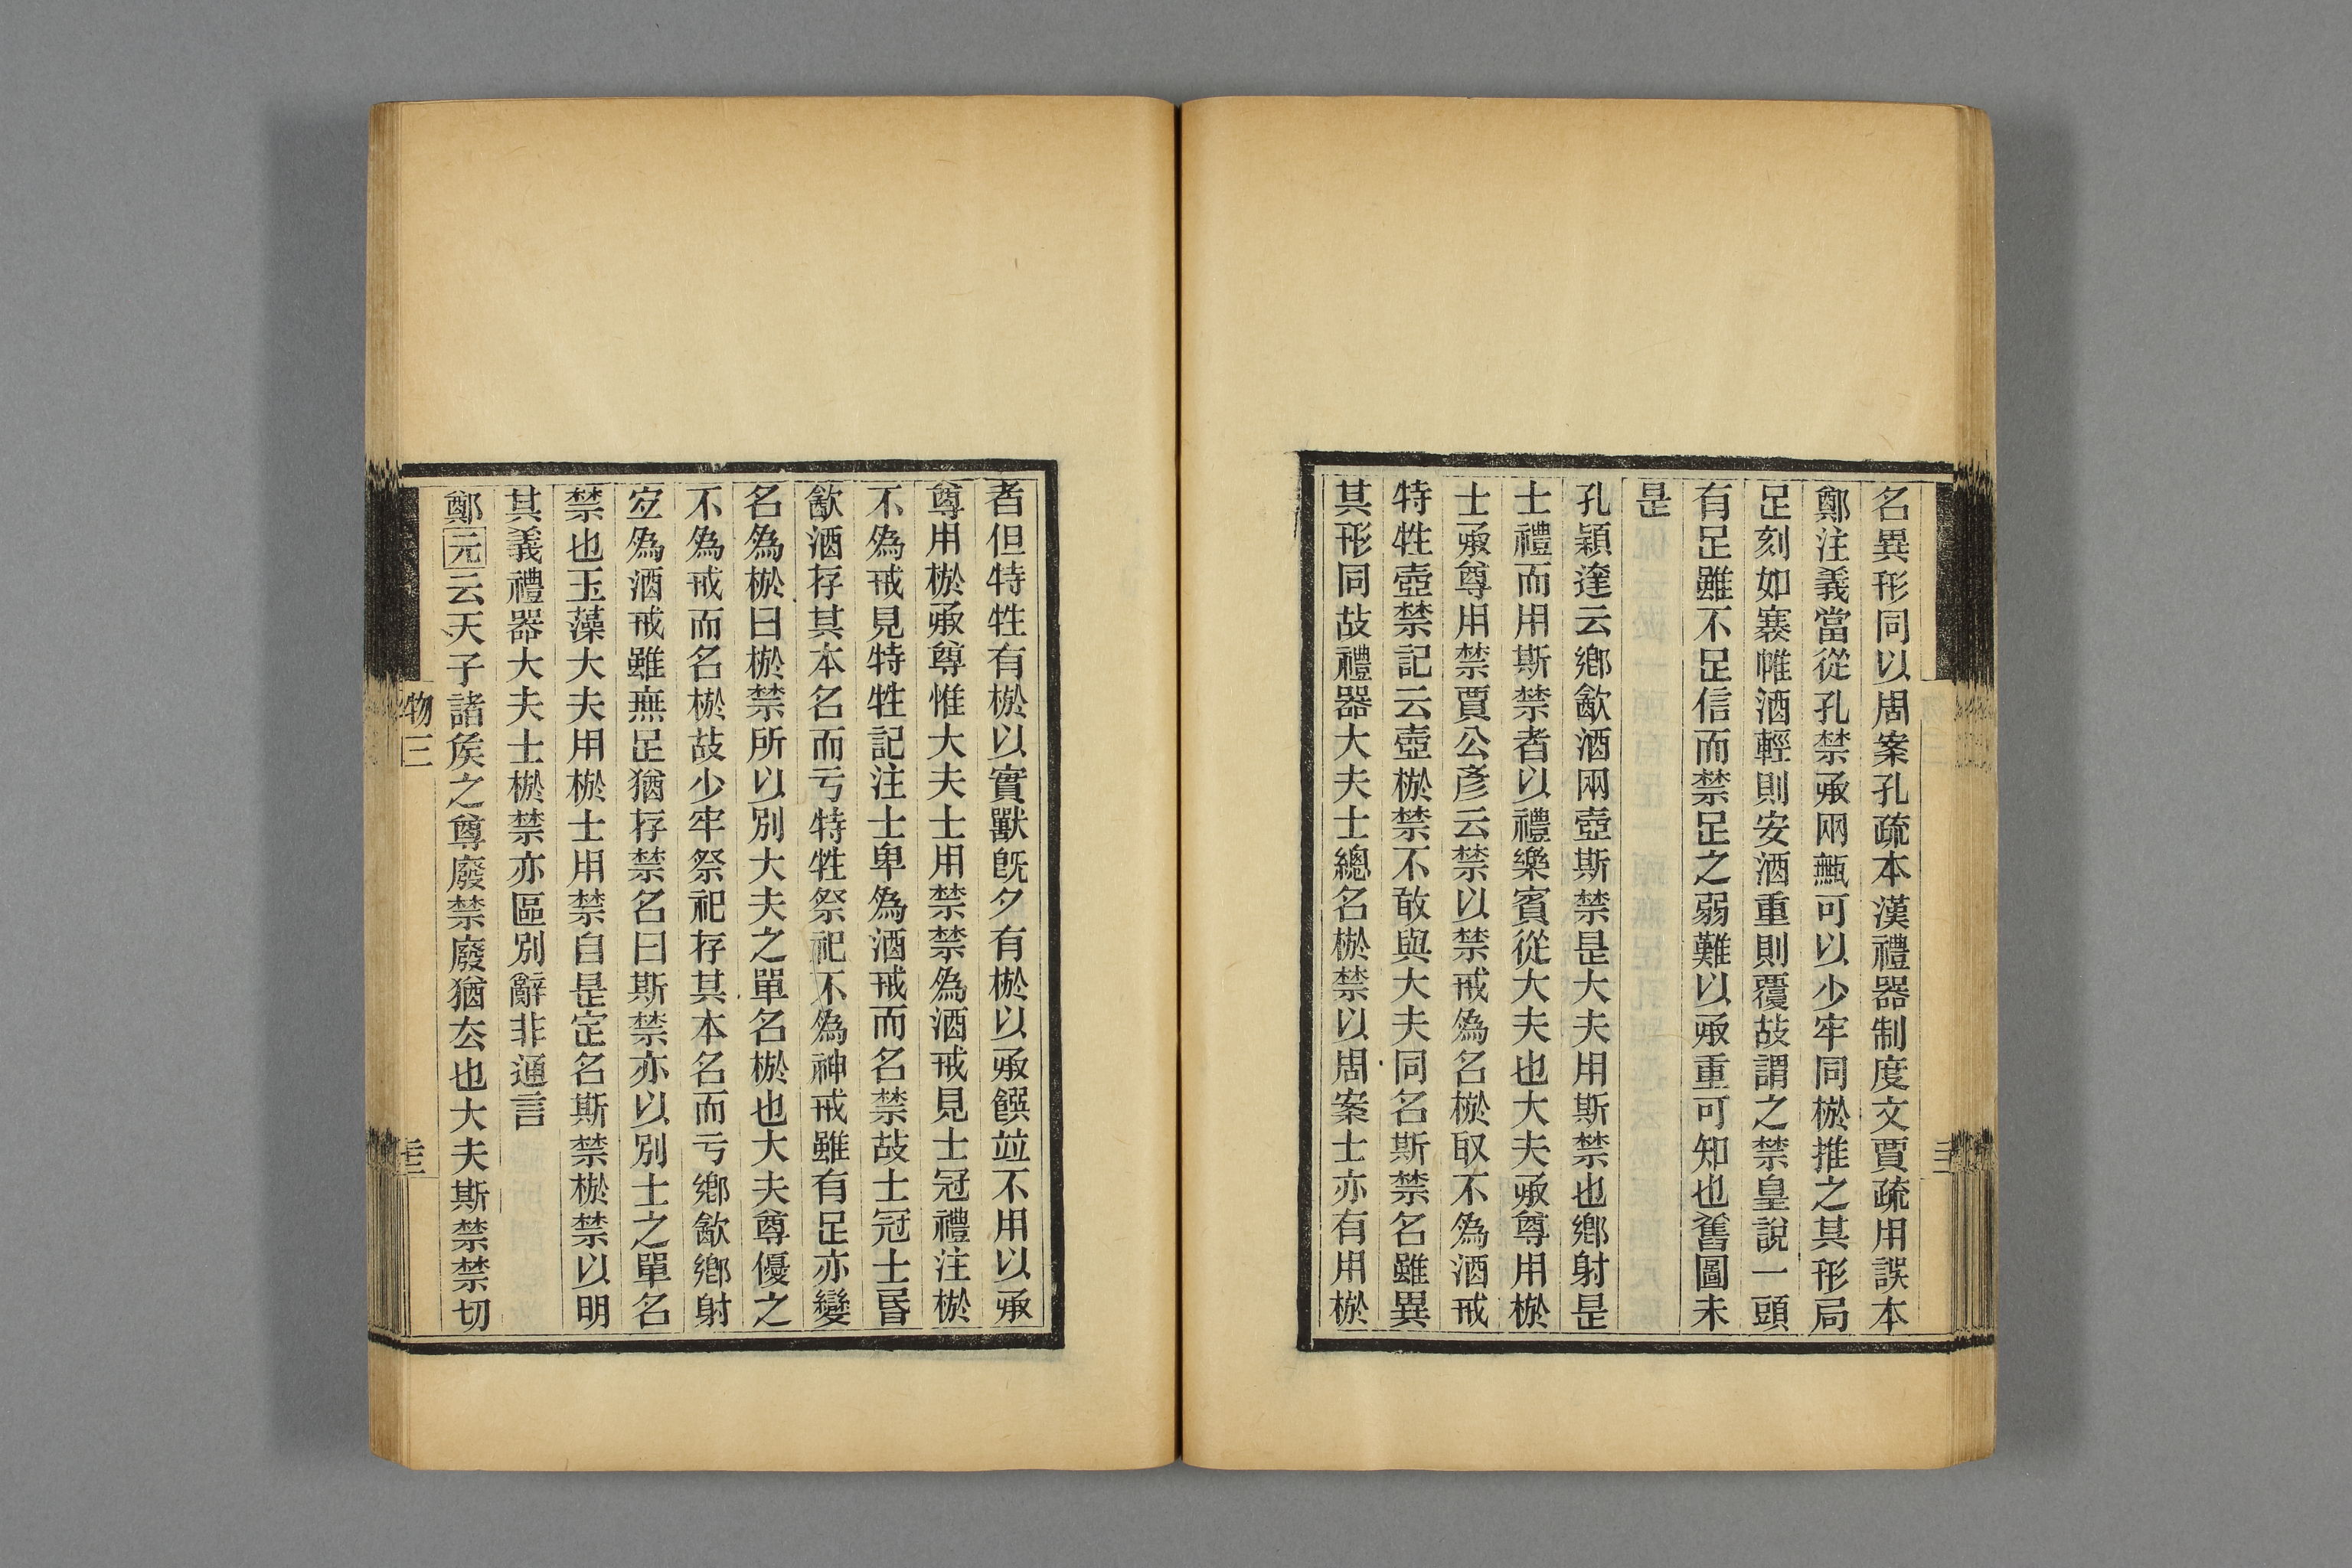 名異形同以周案孔疏本漢禮器制度文賈疏用誤本
鄭注義當從孔禁承兩甒可以少牢同棜推之其形局
足刻如褰帷酒輕則安酒重則覆故謂之禁皇說一頭
有足雖不足信而禁足之弱難以承重可知也舊圖未
是
孔穎達云鄉飮酒兩壺斯禁是大夫用斯禁也鄉射是
士禮而用斯禁者以禮樂賓從大夫也大夫承尊用棜
士承尊用禁賈公彥云禁以禁戒爲名棜取不爲酒戒
特牲壺禁記云壺棜禁不敢與大夫同名斯禁名雖異
其形同故禮器大夫士總名棜禁以周案士亦有用棜
者但特牲有棜以實獸旣夕有棜以承饌竝不用以承
尊用棜承尊惟大夫士用禁禁爲酒戒見士冠禮注棜
不爲戒見特牲記注士卑爲酒戒而名禁故士冠士昏
飮酒存其本名而亏特牲祭祀不爲神戒雖有足亦變
名爲棜曰棜禁所以別大夫之單名棜也大夫尊優之
不爲戒而名棜故少牢祭祀存其本名而亏鄉飮鄉射
宐爲酒戒雖無足猶存禁名曰斯禁亦以別士之單名
禁也玉藻大夫用棜士用禁自是定名斯禁棜禁以明
其義禮器大夫士棜禁亦區別辭非通言
鄭元云天子諸矦之尊廢禁廢猶厺也大夫斯禁禁切
物三